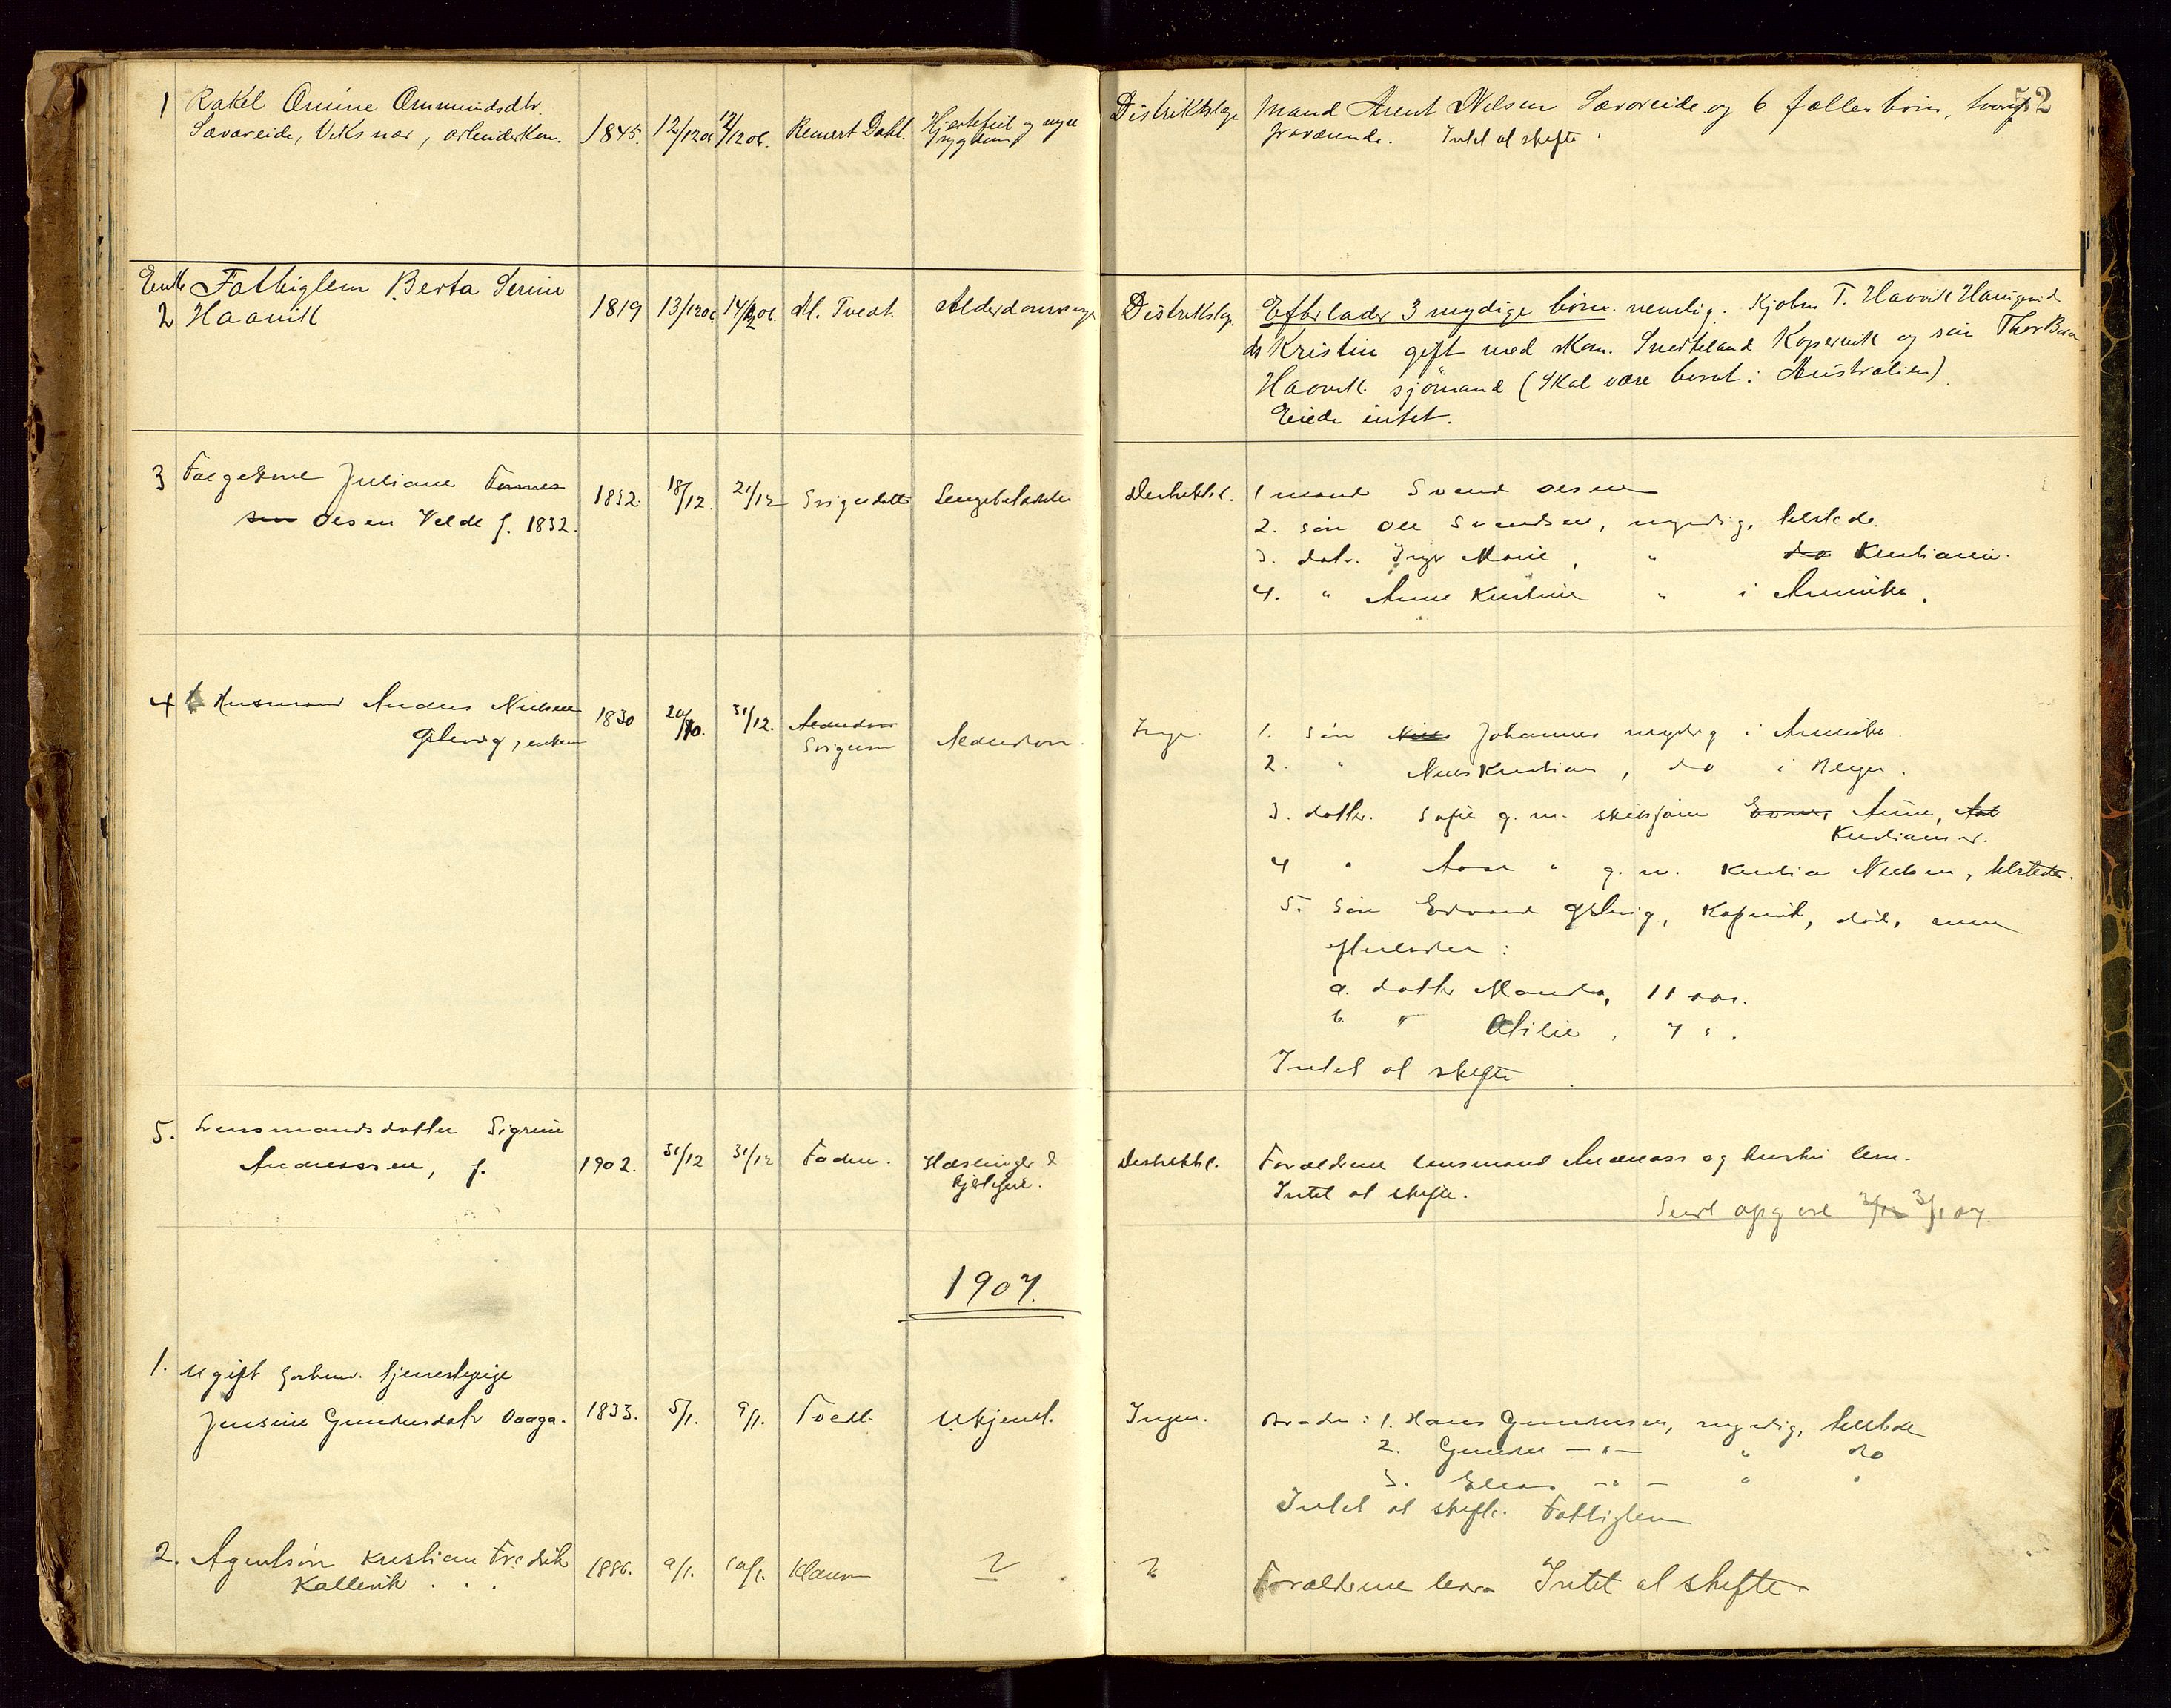 52
1 Rakel Omine Ommundsdtr.
Sævareide, Viksnær, arbeiderkon.
1845. 12/12 06 12/12 06. Remert Dahl. Hjertefeil og nyre
sygdom
Distriktslæge
Mand Arent Nilsen Sævareide og 6 fælles børn, hvoraf
fraværende. Intet at skifte
Enke Fattiglem Berta Serine
2 Haavik
1819 13/12 06. 14/12 06. M. Tvedt. Alderdomssvag
Distriktslæg.
Efterlader 3 mydige børn. nemlig. Kjøbm T. Haavik Haugesund
dtr Kristin gift med skom. Snerteland Kopervik og søn Thor Bern
Haavik. sjömand (Skal være bosat i Australien)
Eiede intet.
3 Foegekone Juliane
Olsen Velde f. 1832.
1832. 18/12. 21/12 Lungebetændelse
Distriktsl.
1 mand Svend Olsen
2. søn Ole Svendsen, myndig, tilstede.
3. datr. Inger Marie, " do Kristiania.
4. " Anne Kristine " i Amerika.
4 Husmand Anders Nielsen
enkem
1830 20/10. 31/12. Alderdom
Alderdom.
Ingen.
1. søn Niels Johannes myndig i Amerika.
2. " Niels Kristian, do i Bergen.
3. datter. Sofie g. m. Arne,
Kristiansund.
4 " Aase " g. m. Kristian Nielsen, tilstede.
5. Søn Edvard Kopervik, død, men
efterlader:
a. datter Manda, 11 aar.
b. " Otilie, 7 ".
Intet at skifte
5. Lensmandsdatter Sigrun
Andreassen, f.
1902. 31/12 31/12 Faderen. Halsbinge &
hjertefeil.
Distriktsl.
Forældrene lensmand Andreass og hustru lever.
Intet at skifte.
Sendt opg ove 3/12 3/1 07.
1907.
1. Ugift forhenv. tjenestepige
Jensine Gundersdatr Vaaga.
1833. 5/1. 9/1. Tvedt. Ukjendt.
Ingen.
Brødre: 1. Hans Gundersen, myndig, tilstede
2. Gunder — " — " do
3. Elias — " — " "
Intet at skifte. Fattiglem
2. Agentsøn Kristian Fredrik
Kallevik . . .
1886. 9/1. 10/1. ?
?
Forældrene lever Intet at skifte.